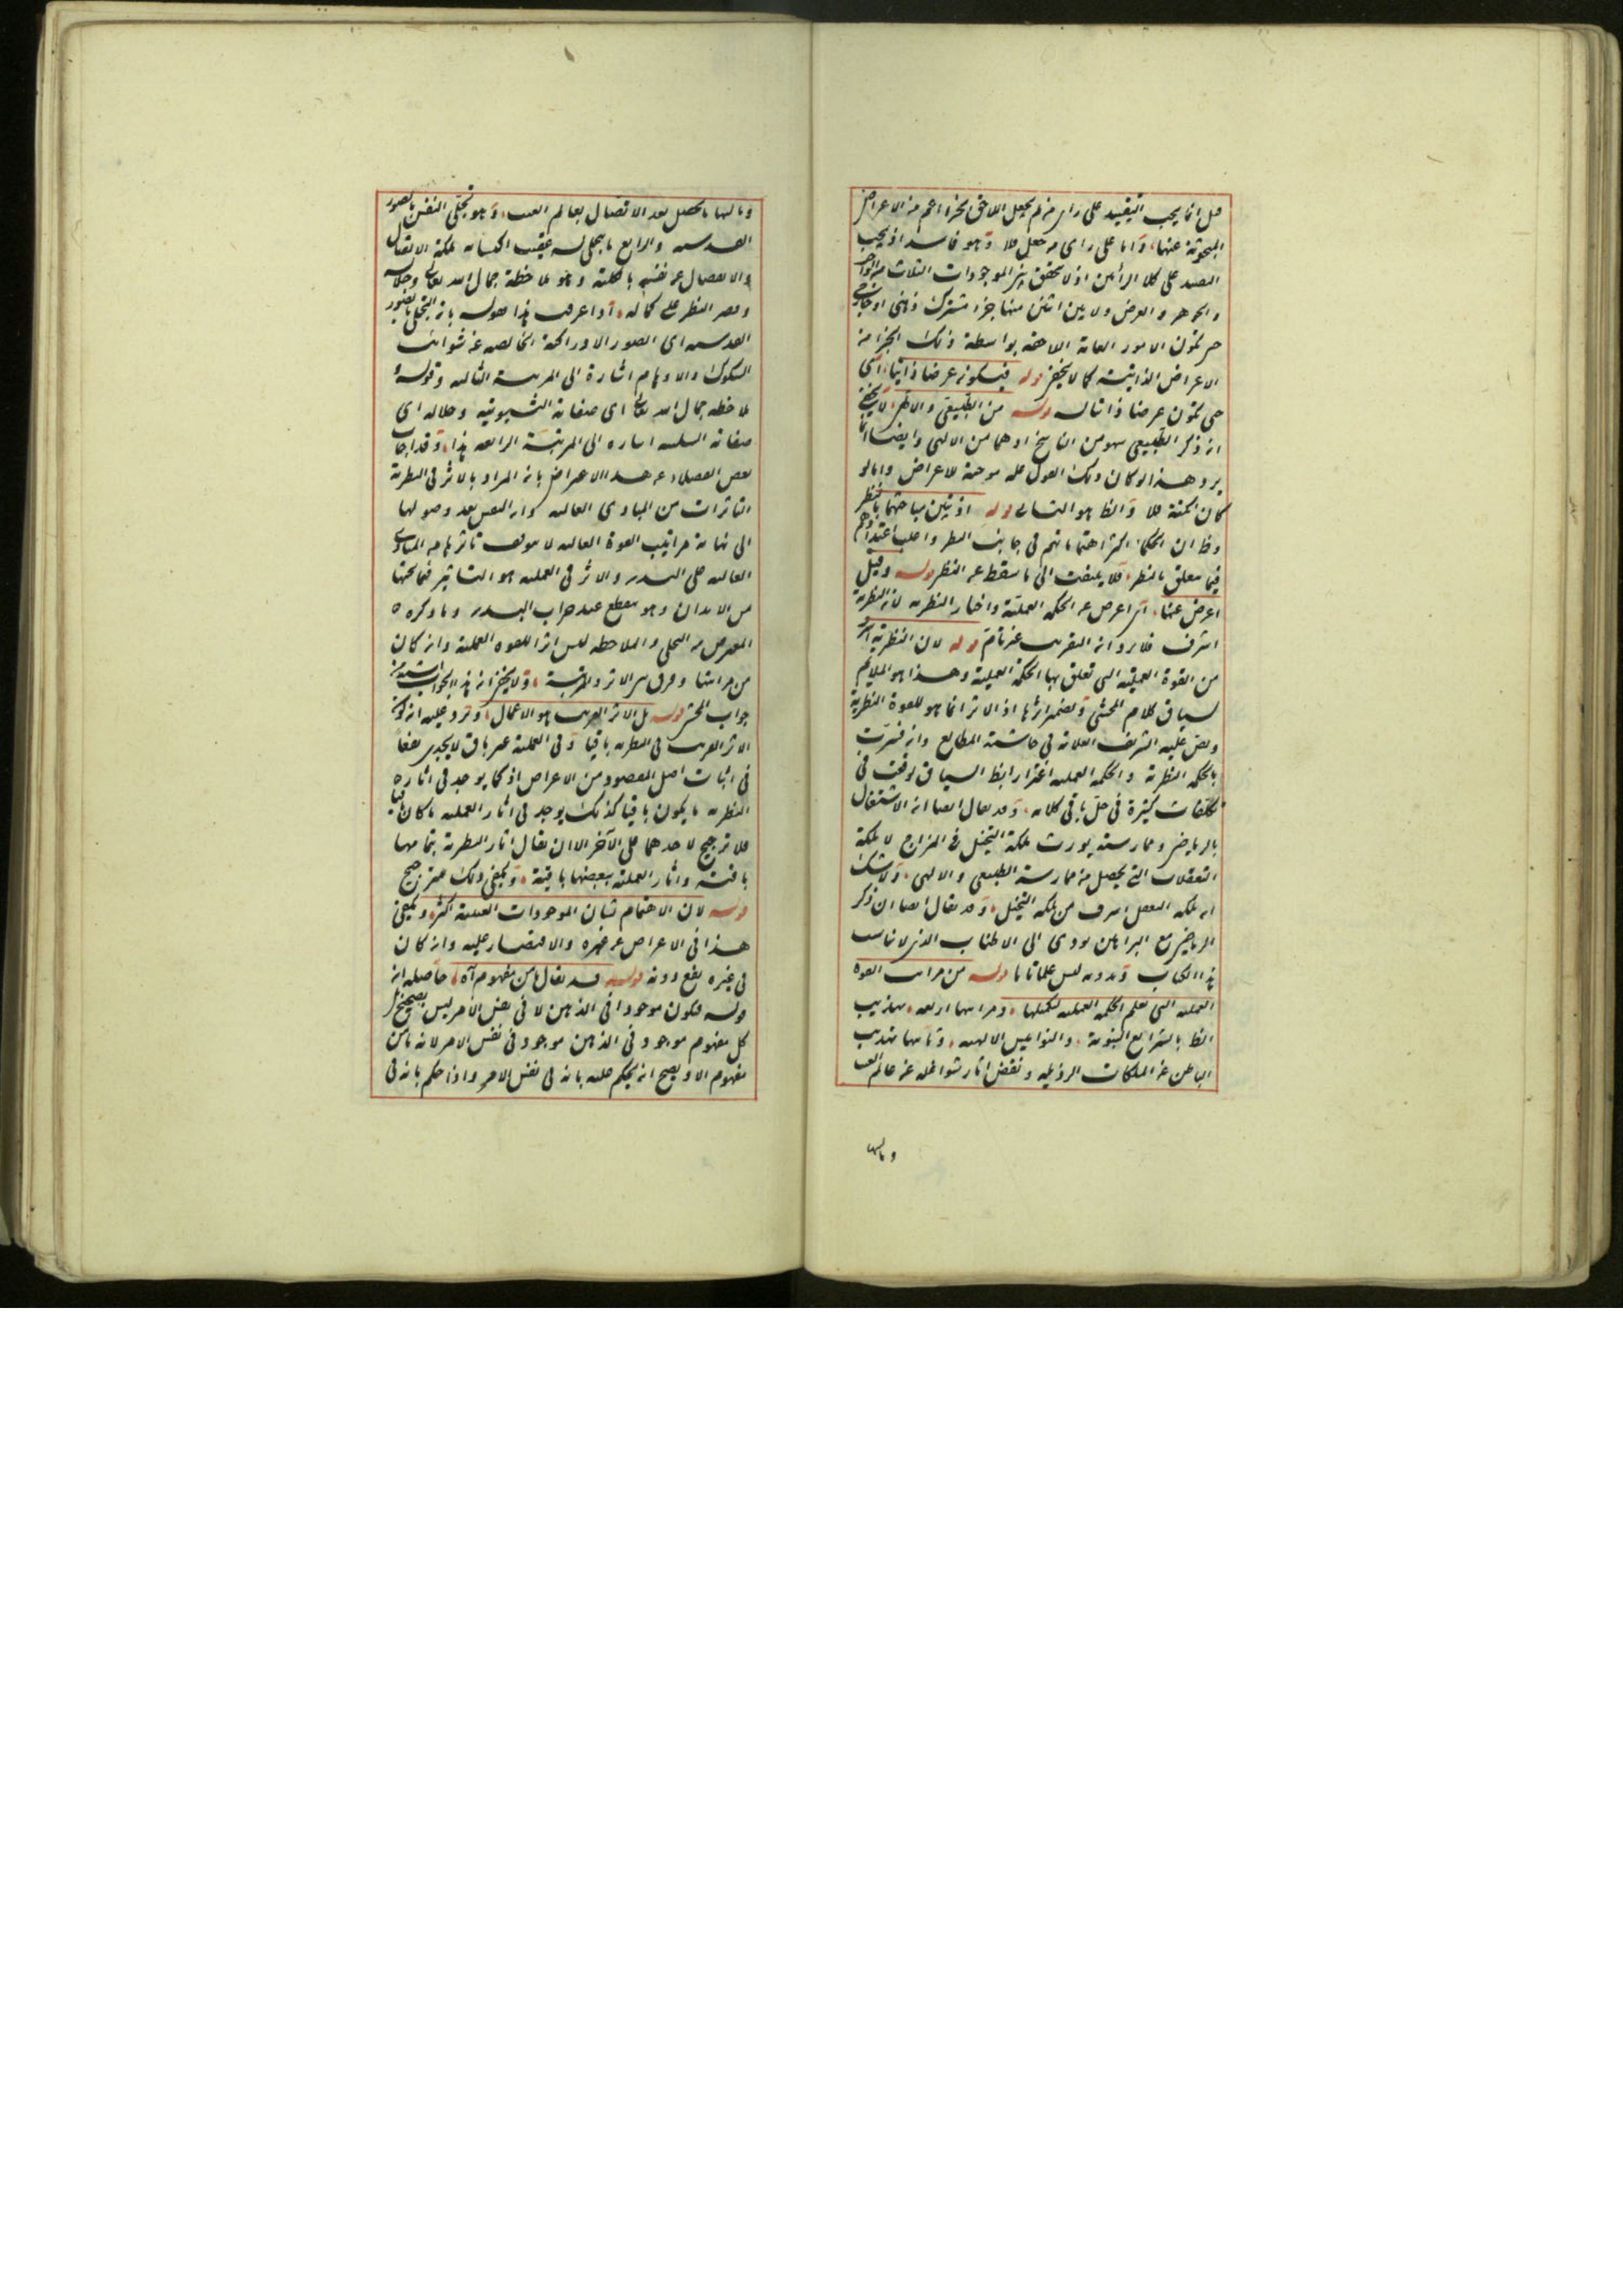 قيل انما يجب التقييد على راى من لم يجعل اللاحق لجزء اعم من الاعراض
المبحوثة عنها، واما على راى من جعل فلا وهو فاسد اذ يجب
التقييد على كلا الرأيين اذ لا يتحقق بين الموجودات الثلاث من الواجب
والجوهر والعرض ولا بين اثنين منها جزء مشترك ذهنى او خارجى
حتى تكون الامور العامة اللاحقة بواسطة ذلك الجزء من
الاعراض الذاتية كما لا يخفى قوله فيكونه عرضا ذاتيا، اى
حتى تكون عرضا ذاتيا له قوله من الطبيعى والالهى، لا يخفى
ان ذكر الطبيعى سهو من الناسخ او هما من الالهى وايضا انما
يرد هذا لو كان ذلك القول علة موجبة للاعراض واما لو
كان نكتة فلا والظ هو التالى قوله اذ تبين مباحثها بالنظر
وظ ان الحكماء اكثر اهتماماتهم فى جانب النظر واغلب اعتدادهم
فيما يتعلق بالنظر، فلا يلتفت الى ما سقط عن النظر قوله وقيل
اعرض عنها، اى اعرض عن الحكمة العملية واختار النظرية لان النظرية
اشرف فلا يرد ان التقريب غير تام قوله لان النظرية اشرف
من القوة العملية التى تتعلق بها الحكمة العملية وهذا هو الملايم
لسياق كلام المحشى وتضمير اثرها اذ الاثر انما هو للقوة النظرية
ونص عليه الشريف العلامة فى حاشية المطالع وان فسرت
بالحكمة النظرية والحكمة العملية اغترارا بظ السياق لوقعت فى
تكلفات كثيرة فى حل باقى كلامه، وقد يقال ايضا ان الاشتغال
بالرياضى وممارسته يورث ملكة التخيل فى المزاج لا ملكة
التعقلات التى يحصل من ممارسة الطبيعى والالهى، ولا شك
ان ملكة التعقل اشرف من ملكة التخيل، وقد يقال ايضا ان ذكر
الرياضى مع البراهين يودى الى الاطناب الذى لا يناسب
هذا الكتاب وبدونه ليس علما تاما قوله من مراتب القوة
العملية التى تعلم الحكمة العملية لتكميلها، ومراتبها اربعة، تهذيب
الظ بالشرايع النبوية، والنواميس الالهية، وثانيها تهذيب
الباطن عن الملكات الرذيلة ونقض اثار شواغله عن عالم الغيب
وثالثها
وثالثها ما يحصل بعد الاتصال بعالم الغيب، وهو تحلى النفس بالصور
القدسية والرابع ما يتجلى له عقيب اكتسابه ملكة الاتصال
والانفصال عن نفسه بالكلية وهو ملاحظة جمال الله تعالى وجلاله
وقصر النظر على كماله، واذا عرفت هذا فقوله بان التحلى بالصور
القدسية اى الصور الادراكية الخالصة عن شوائب
الشكوك والاوهام اشارة الى المرتبة الثالثة وقوله و
ملاحظة جمال الله تعالى اى صفاته الثبوتية وجلاله اى
صفاته السلبية اشارة الى المرتبة الرابعة هذا، وقد اجاب
بعض الفضلاء عن هذا الاعتراض بان المراد بالاثر فى النظرية
التاثرات من المبادى العالية وان النفس بعد وصولها
الى نهاية مراتيب القوة العالية لا يتوقف تاثرها من المبادى
العالية على البدن والاثر فى العملية هو التاثير فيما تحتها
من الابدان وهو ينقطع عند خراب البدن وما ذكره
المعترض من التحلى والملاحظة ليس اثرا للقوة العملية وان كان
من مراتبها وفرق بين الاثر والمرتبة، ولا يخفى ان هذا الجواب
جواب المحشى قوله بل الاثر القريب هو الاعمال، ويرد عليه ان كون
الاثر القريب فى النظرية باقيا وفى العملية غير باق لا يجدى نفعا
فى اثبات اصل المقصود من الاعراض اذ كما يوجد فى اثاره
النظرية ما يكون باقيا كذلك يوجد فى اثار العملية ما كان باقيا
فلا ترجيح لاحدهما على الآخر الا ان يقال اثار النظرية بتمامها
باقية واثار العملية ببعضها باقية، ويكفى ذلك
قوله لان الاهتمام بشان الموجودات العينية اكثر، ويكفى
هذا فى الاعراض عن غيره والاقتصار عليه وان كان
فى غيره نفع دونه قوله قد يقال ما من مفهوم آه، حاصله ان
قوله فتكون موجودا فى الذهن لا فى نفس الامر ليس بصحيح اذ
كل مفهوم موجود فى الذهن موجود فى نفس الامر لانه ما من
مفهوم الا ويصح ان يحكم عليه بانه فى نفس الامر واذا حكم بانه فى